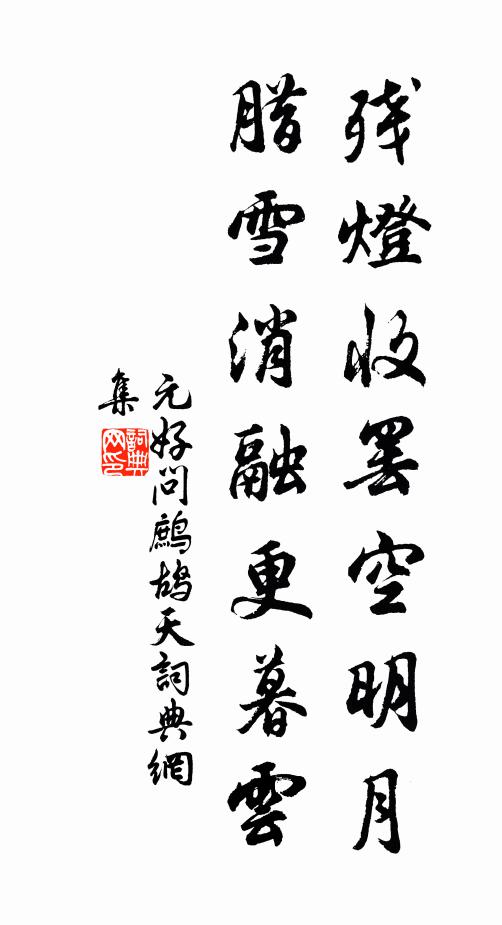 残燈收罢空明月
腊雪消融更暮雲
元好问鹧鸪天詞典網
集
詞典网印